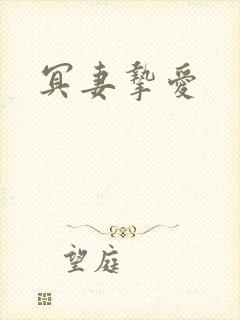 冥妻摯愛
望庭